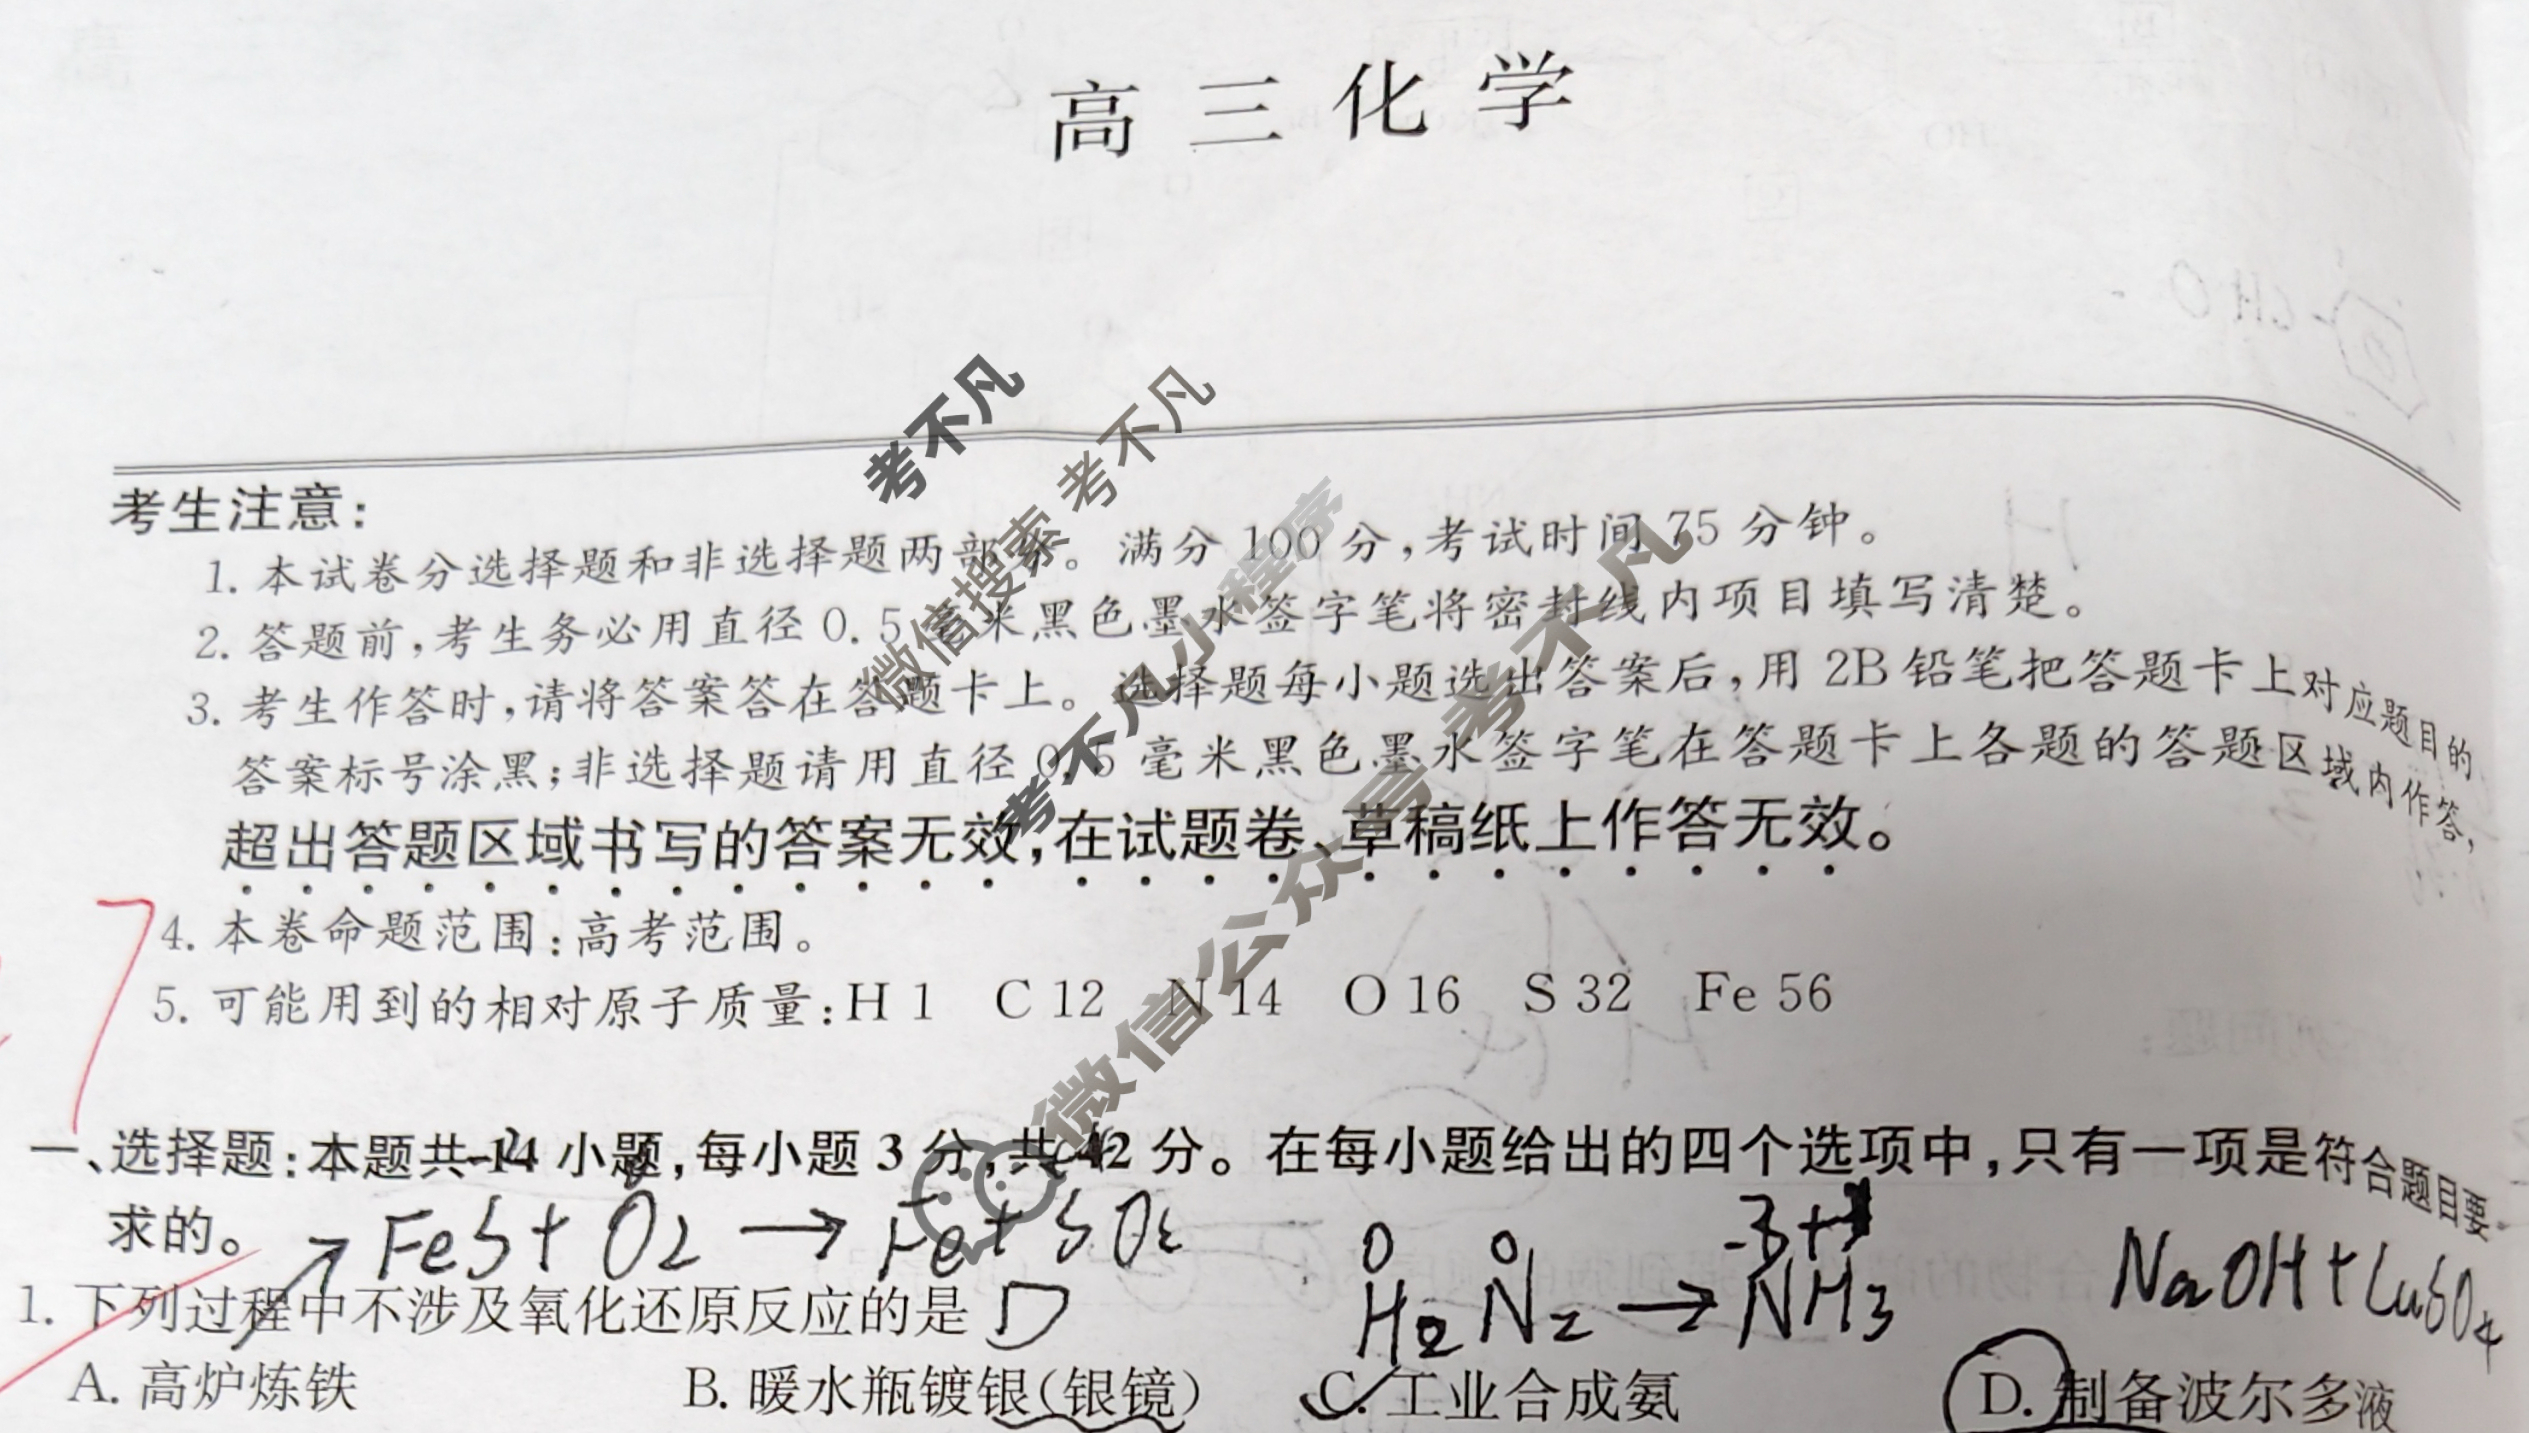 高三化学
考生注意：
1. 本试卷分选择题和非选择题两部分。满分 100 分，考试时间 75 分钟。
2. 答题前，考生务必用直径 0.5 毫米黑色墨水签字笔将密封线内项目填写清楚。
3. 考生作答时，请将答案答在答题卡上。选择题每小题选出答案后，用 2B 铅笔把答题卡上对应题目的
答案标号涂黑；非选择题请用直径 0.5 毫米黑色墨水签字笔在答题卡上各题的答题区域内作答，
超出答题区域书写的答案无效，在试题卷、草稿纸上作答无效。
4. 本卷命题范围：高考范围。
5. 可能用到的相对原子质量：H 1 C 12 N 14 O 16 S 32 Fe 56
一、选择题：本题共 14 小题，每小题 3 分，共 42 分。在每小题给出的四个选项中，只有一项是符合题目要
求的。
FeS + O2 → Fe + SO2
0 0 -3
H2 N2 → NH3
NaOH + CuSO4
1. 下列过程中不涉及氧化还原反应的是 D
A. 高炉炼铁 B. 暖水瓶镀银(银镜) C. 工业合成氨 D. 制备波尔多液
考不凡
微信搜索 考不凡
考不凡小程序
微信公众号 考不凡